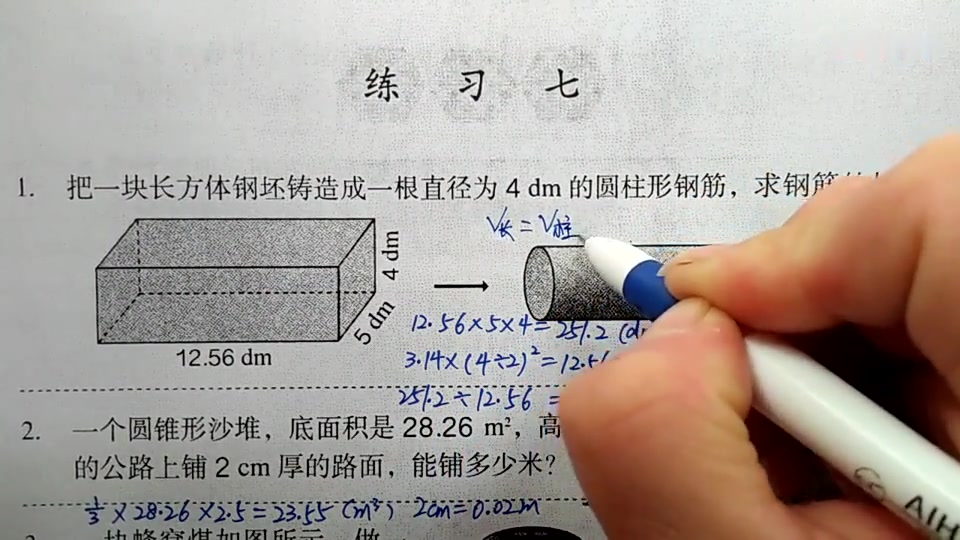 练 习 七
1. 把一块长方体钢坯铸造成一根直径为 4 dm 的圆柱形钢筋，求钢筋
V长=V柱
4 dm
5 dm
12.56 dm
12.56×5×4=251.2 (d
3.14×(4÷2)²=12.56
251.2÷12.56 =
2. 一个圆锥形沙堆，底面积是 28.26 m²，高
的公路上铺 2 cm 厚的路面，能铺多少米？
1/3×28.26×2.5=23.55 (m³) 2cm=0.02m
一块蜂窝煤如图所示，做
AIH